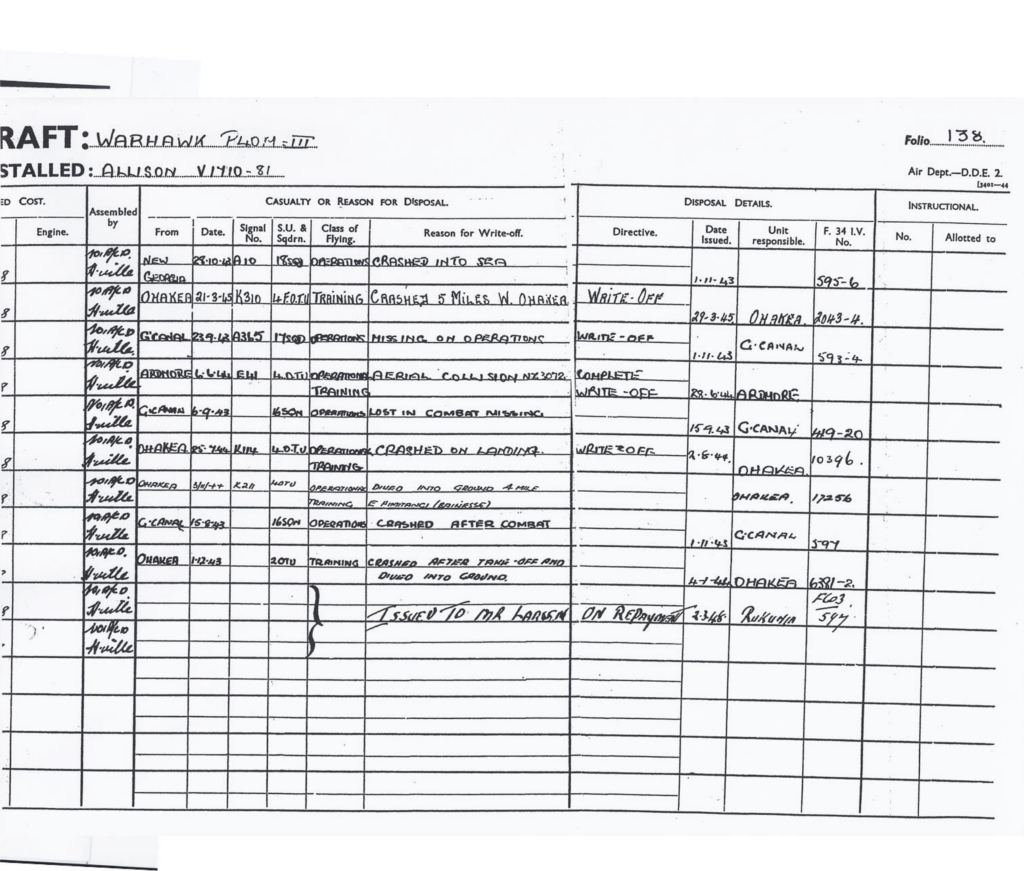 RAFT: WARHAWK P40M-III
Folio 138.
STALLED: ALLISON V1710-81
Air Dept.—D.D.E. 2.
13401—44
ED COST.
Assembled by
CASUALTY OR REASON FOR DISPOSAL.
DISPOSAL DETAILS.
INSTRUCTIONAL.
Engine. From Date. Signal No. S.U. & Sqdrn. Class of Flying. Reason for Write-off. Directive. Date Issued. Unit responsible. F. 34 I.V. No. No. Allotted to
H-ville NEW GEORGIA 28-10-43 A10 18SQN OPERATIONS CRASHED INTO SEA
1-11-43 595-6
H-ville OHAKEA 21-3-45 K310 4.F.O.T.U TRAINING CRASHED 5 MILES W. OHAKEA WRITE-OFF
29-3-45 OHAKEA. 2043-4.
H-ville. G'CANAL 23.9.43 A365 17SQD OPERATIONS MISSING ON OPERATIONS WRITE-OFF
1-11-43 G.CANAL 593-4
H-ville ARDMORE 6-6-44 4.O.T.U OPERATIONAL TRAINING AERIAL COLLISION NZ3072. COMPLETE
WRITE-OFF 28-6-44 ARDMORE
H-ville G.CANAL 6-9-43 16SQN OPERATIONS LOST IN COMBAT MISSING
15.9.43 G.CANAL 419-20
H-ville OHAKEA 25-7-44 K114 4.O.T.U. OPERATIONAL TRAINING CRASHED ON LANDING. WRITE-OFF 2-8-44. OHAKEA 10396.
H-ville OHAKEA K211 4OTU OPERATIONAL TRAINING DIVED INTO GROUND 4 MILE
E HIMITANGI (RAINESSE) OHAKEA. 17256
H-ville G.CANAL 15-8-43 16SQN OPERATIONS CRASHED AFTER COMBAT
1-11-43 G.CANAL 597
H-ville OHAKEA 1-12-43 2OTU TRAINING CRASHED AFTER TAKE-OFF AND
DIVED INTO GROUND. 4-1-44 OHAKEA 6381-2.
H-ville } ISSUED TO MR LARSEN ON REPAYMENT 2-3-48. RUKUHIA F603/597
H-ville